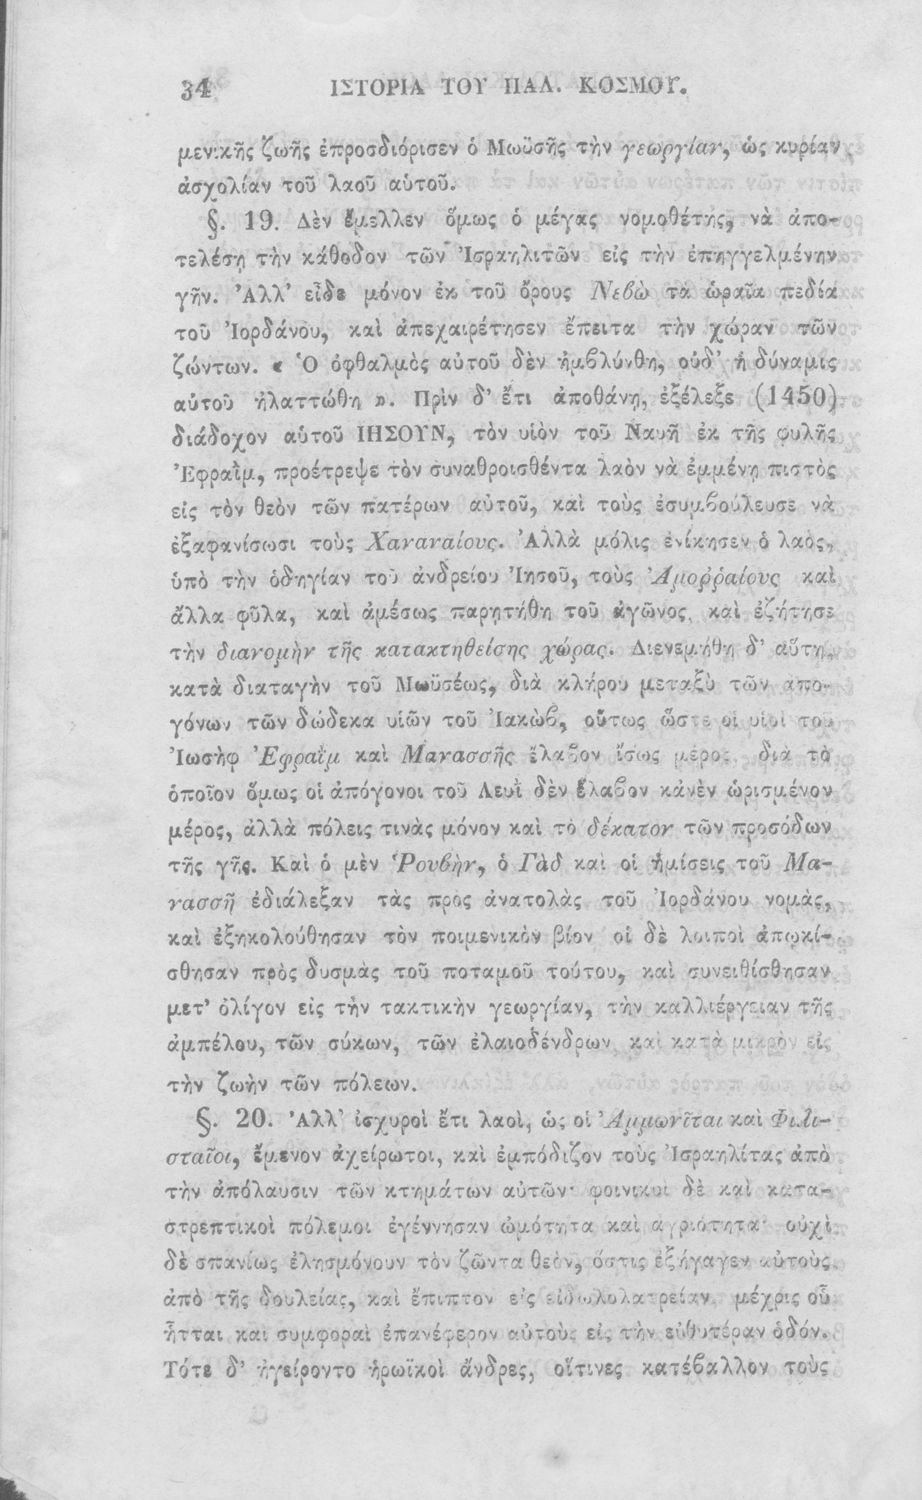 34 ΙΣΤΟΡΙΑ ΤΟΥ ΠΑΛ. ΚΟΣΜΟΥ.
μενικῆς ζωῆς ἐπροσδιόρισεν ὁ Μωϋσῆς τὴν γεωργίαν, ὡς κυρίαν
ἀσχολίαν τοῦ λαοῦ αὑτοῦ.
§. 19. Δὲν ἔμελλεν ὅμως ὁ μέγας νομοθέτης, νὰ ἀπο-
τελέσῃ τὴν κάθοδον τῶν Ἰσραηλιτῶν εἰς τὴν ἐπηγγελμένην
γῆν. Ἀλλ' εἶδε μόνον ἐκ τοῦ ὄρους Νεβὼ τὰ ὡραῖα πεδία
τοῦ Ἰορδάνου, καὶ ἀπεχαιρέτησεν ἔπειτα τὴν χώραν τῶν
ζώντων. « Ὁ ὀφθαλμὸς αὐτοῦ δὲν ἠμβλύνθη, οὐδ' ἡ δύναμις
αὐτοῦ ἠλαττώθη ». Πρὶν δ' ἔτι ἀποθάνῃ, ἐξέλεξε (1450)
διάδοχον αὑτοῦ ΙΗΣΟΥΝ, τὸν υἱὸν τοῦ Ναυῆ ἐκ τῆς φυλῆς
Ἐφραῒμ, προέτρεψε τὸν συναθροισθέντα λαὸν νὰ ἐμμένῃ πιστὸς
εἰς τὸν θεὸν τῶν πατέρων αὑτοῦ, καὶ τοὺς ἐσυμβούλευσε νὰ
ἐξαφανίσωσι τοὺς Χαναναίους. Ἀλλὰ μόλις ἐνίκησεν ὁ λαὸς,
ὑπὸ τὴν ὁδηγίαν τοῦ ἀνδρείου Ἰησοῦ, τοὺς Ἀμοῤῥαίους καὶ
ἄλλα φῦλα, καὶ ἀμέσως παρητήθη τοῦ ἀγῶνος, καὶ ἐζήτησε
τὴν διανομὴν τῆς κατακτηθείσης χώρας. Διενεμήθη δ' αὕτη,
κατὰ διαταγὴν τοῦ Μωϋσέως, διὰ κλήρου μεταξὺ τῶν ἀπο-
γόνων τῶν δώδεκα υἱῶν τοῦ Ἰακὼβ, οὕτως ὥστε οἱ υἱοὶ τοῦ
Ἰωσὴφ Ἐφραῒμ καὶ Μανασσῆς ἔλαβον ἴσως μέρος, διὰ τὸ
ὁποῖον ὅμως οἱ ἀπόγονοι τοῦ Λευῒ δὲν ἔλαβον κἀνὲν ὡρισμένον
μέρος, ἀλλὰ πόλεις τινὰς μόνον καὶ τὸ δέκατον τῶν προσόδων
τῆς γῆς. Καὶ ὁ μὲν Ῥουβὴν, ὁ Γὰδ καὶ οἱ ἡμίσεις τοῦ Μα-
νασσῆ ἐδιάλεξαν τὰς πρὸς ἀνατολὰς τοῦ Ἰορδάνου νομὰς,
καὶ ἐξηκολούθησαν τὸν ποιμενικὸν βίον οἱ δὲ λοιποὶ ἀπῳκί-
σθησαν πρὸς δυσμὰς τοῦ ποταμοῦ τούτου, καὶ συνειθίσθησαν
μετ' ὀλίγον εἰς τὴν τακτικὴν γεωργίαν, τὴν καλλιέργειαν τῆς
ἀμπέλου, τῶν σύκων, τῶν ἐλαιοδένδρων καὶ κατὰ μικρὸν εἰς
τὴν ζωὴν τῶν πόλεων.
§. 20. Ἀλλ' ἰσχυροὶ ἔτι λαοὶ, ὡς οἱ Ἀμμωνῖται καὶ Φιλι-
σταῖοι, ἔμενον ἀχείρωτοι, καὶ ἐμπόδιζον τοὺς Ἰσραηλίτας ἀπὸ
τὴν ἀπόλαυσιν τῶν κτημάτων αὑτῶν· φοινικοὶ δὲ καὶ κατα-
στρεπτικοὶ πόλεμοι ἐγέννησαν ὠμότητα καὶ ἀγριότητα· οὐχὶ
δὲ σπανίως ἐλησμόνουν τὸν ζῶντα θεὸν, ὅστις ἐξήγαγεν αὐτοὺς
ἀπὸ τῆς δουλείας, καὶ ἔπιπτον εἰς εἰδωλολατρείαν, μέχρις οὗ
ἧτται καὶ συμφοραὶ ἐπανέφερον αὐτοὺς εἰς τὴν εὐθυτέραν ὁδόν.
Τότε δ' ἠγείροντο ἡρωϊκοὶ ἄνδρες, οἵτινες κατέβαλλον τοὺς